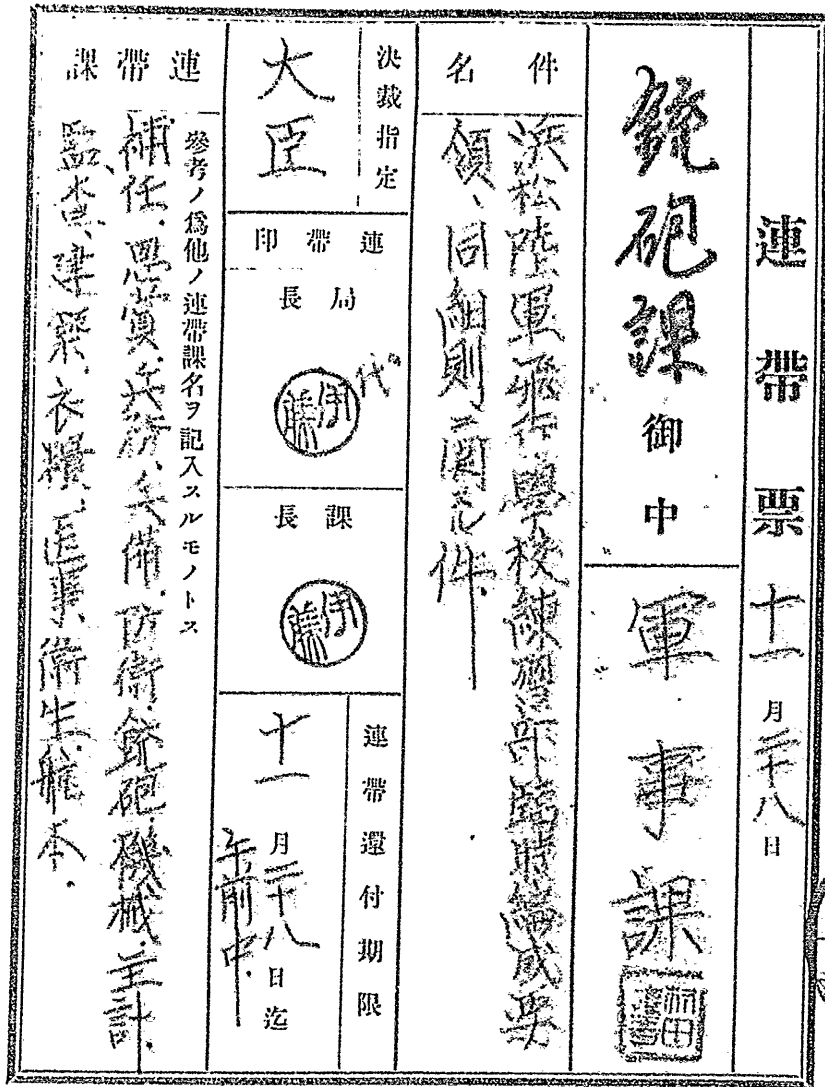 連帶票 十一月二十八日
銃砲課御中
軍事課
件名
浜松陸軍飛行學校練習部臨時編成要
領、同細則ニ関スル件
決裁指定
大臣
連帶印
局長
代
伊藤
課長
伊藤
連帶還付期限
十一月二十八日迄
午前中
連帶課
參考ノ爲他ノ連帶課名ヲ記入スルモノトス
補任、恩賞、兵務、兵備、防衛、銃砲、機械、主計、
監査、建築、衣糧、医事、衛生、航本、